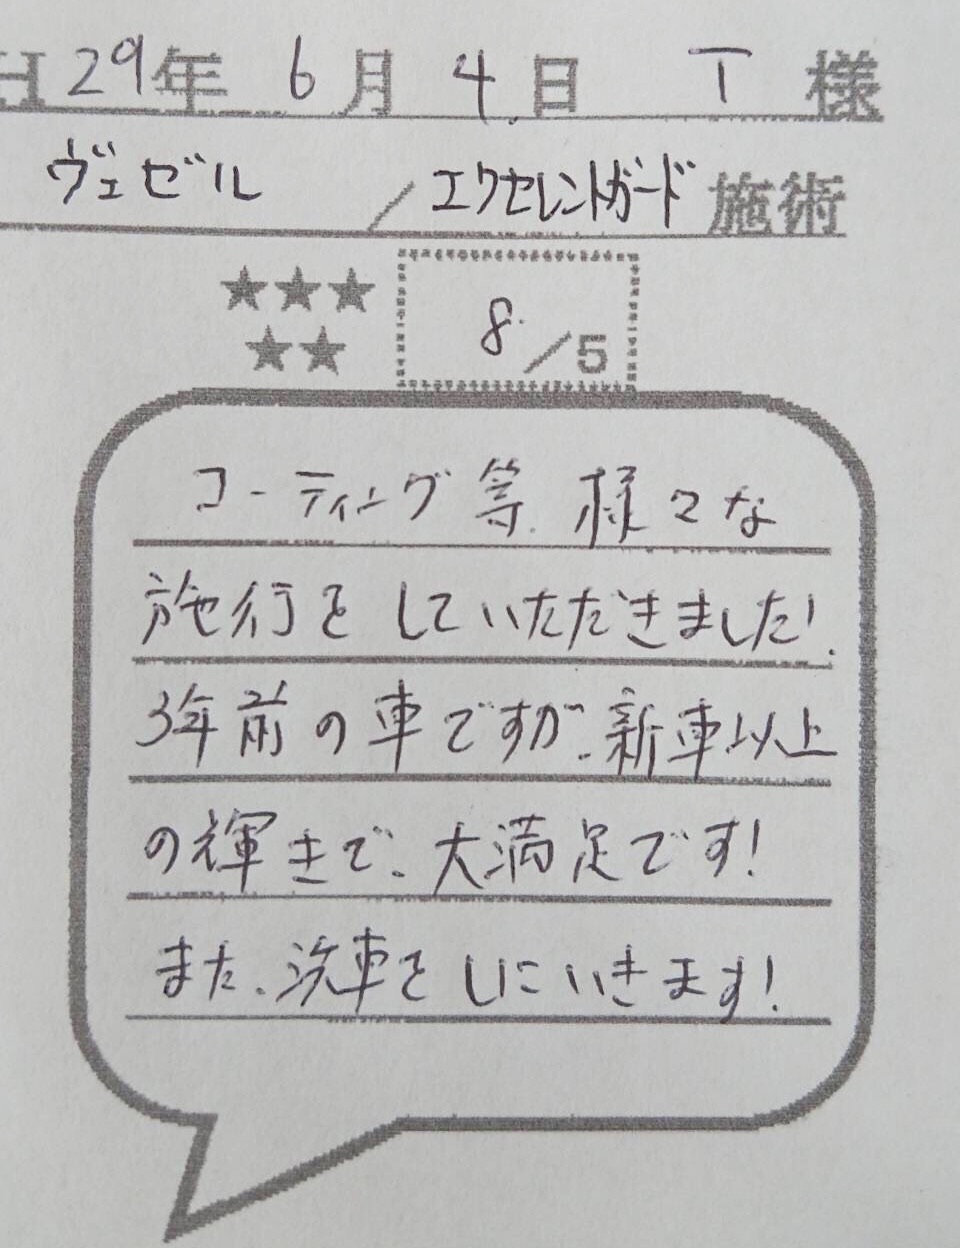 H29年 6月 4日 T様
ヴェゼル / エクセレントガード施術
★★★
★★
8/5
コーティング等 様々な
施行をしていただきました!
3年前の車ですが、新車以上
の輝きで、大満足です!
また、洗車をしにいきます!